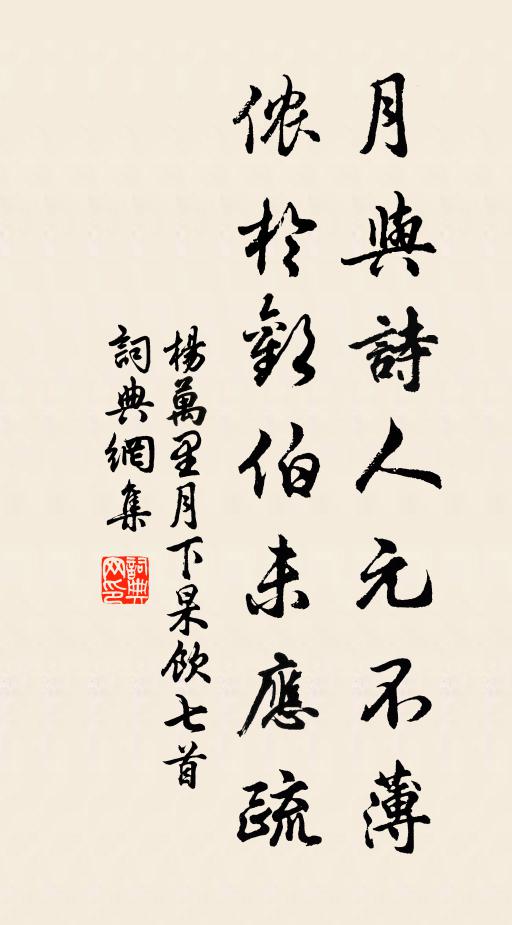 月與詩人元不薄
侬於歡伯未應疏
楊萬里月下杲飲七首
詞典網集
詞典网印